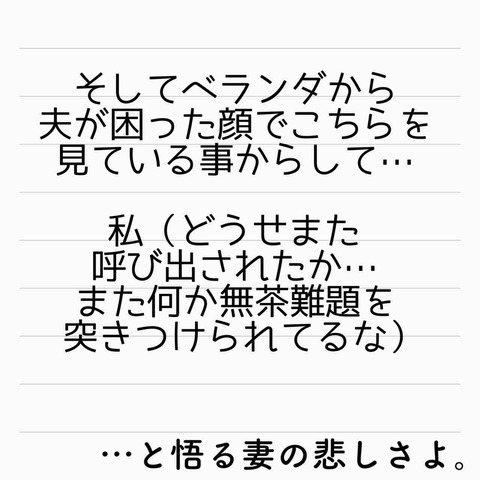 そしてベランダから
夫が困った顔でこちらを
見ている事からして…
私（どうせまた
呼び出されたか…
また何か無茶難題を
突きつけられてるな）
…と悟る妻の悲しさよ。